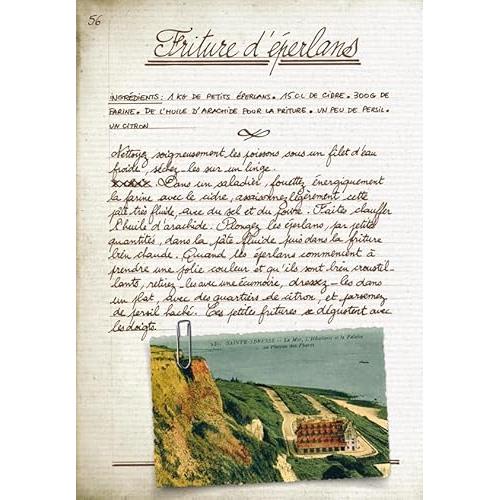 56
Friture d'éperlans
INGRÉDIENTS : 1 KG DE PETITS ÉPERLANS. 15 CL DE CIDRE. 300G DE
FARINE. DE L'HUILE D'ARACHIDE POUR LA FRITURE. UN PEU DE PERSIL.
UN CITRON
Nettoyez soigneusement les poissons sous un filet d'eau
froide, séchez-les sur un linge.
Dans un saladier, fouettez énergiquement
la farine avec le cidre, assaisonnez légèrement cette
pâte très fluide, avec du sel et du poivre. Faites chauffer
l'huile d'arachide. Plongez les éperlans, par petites
quantités, dans la pâte fluide puis dans la friture
bien chaude. Quand les éperlans commencent à
prendre une jolie couleur et qu'ils sont bien croustil-
lants, retirez-les avec une écumoire, dressez-les dans
un plat, avec des quartiers de citron, et parsemez
de persil haché. Ces petites fritures se dégustent avec
les doigts.
SAINTE-ADRESSE - La Mer, L'Hôtellerie et le Palais
au Plateau des Phares